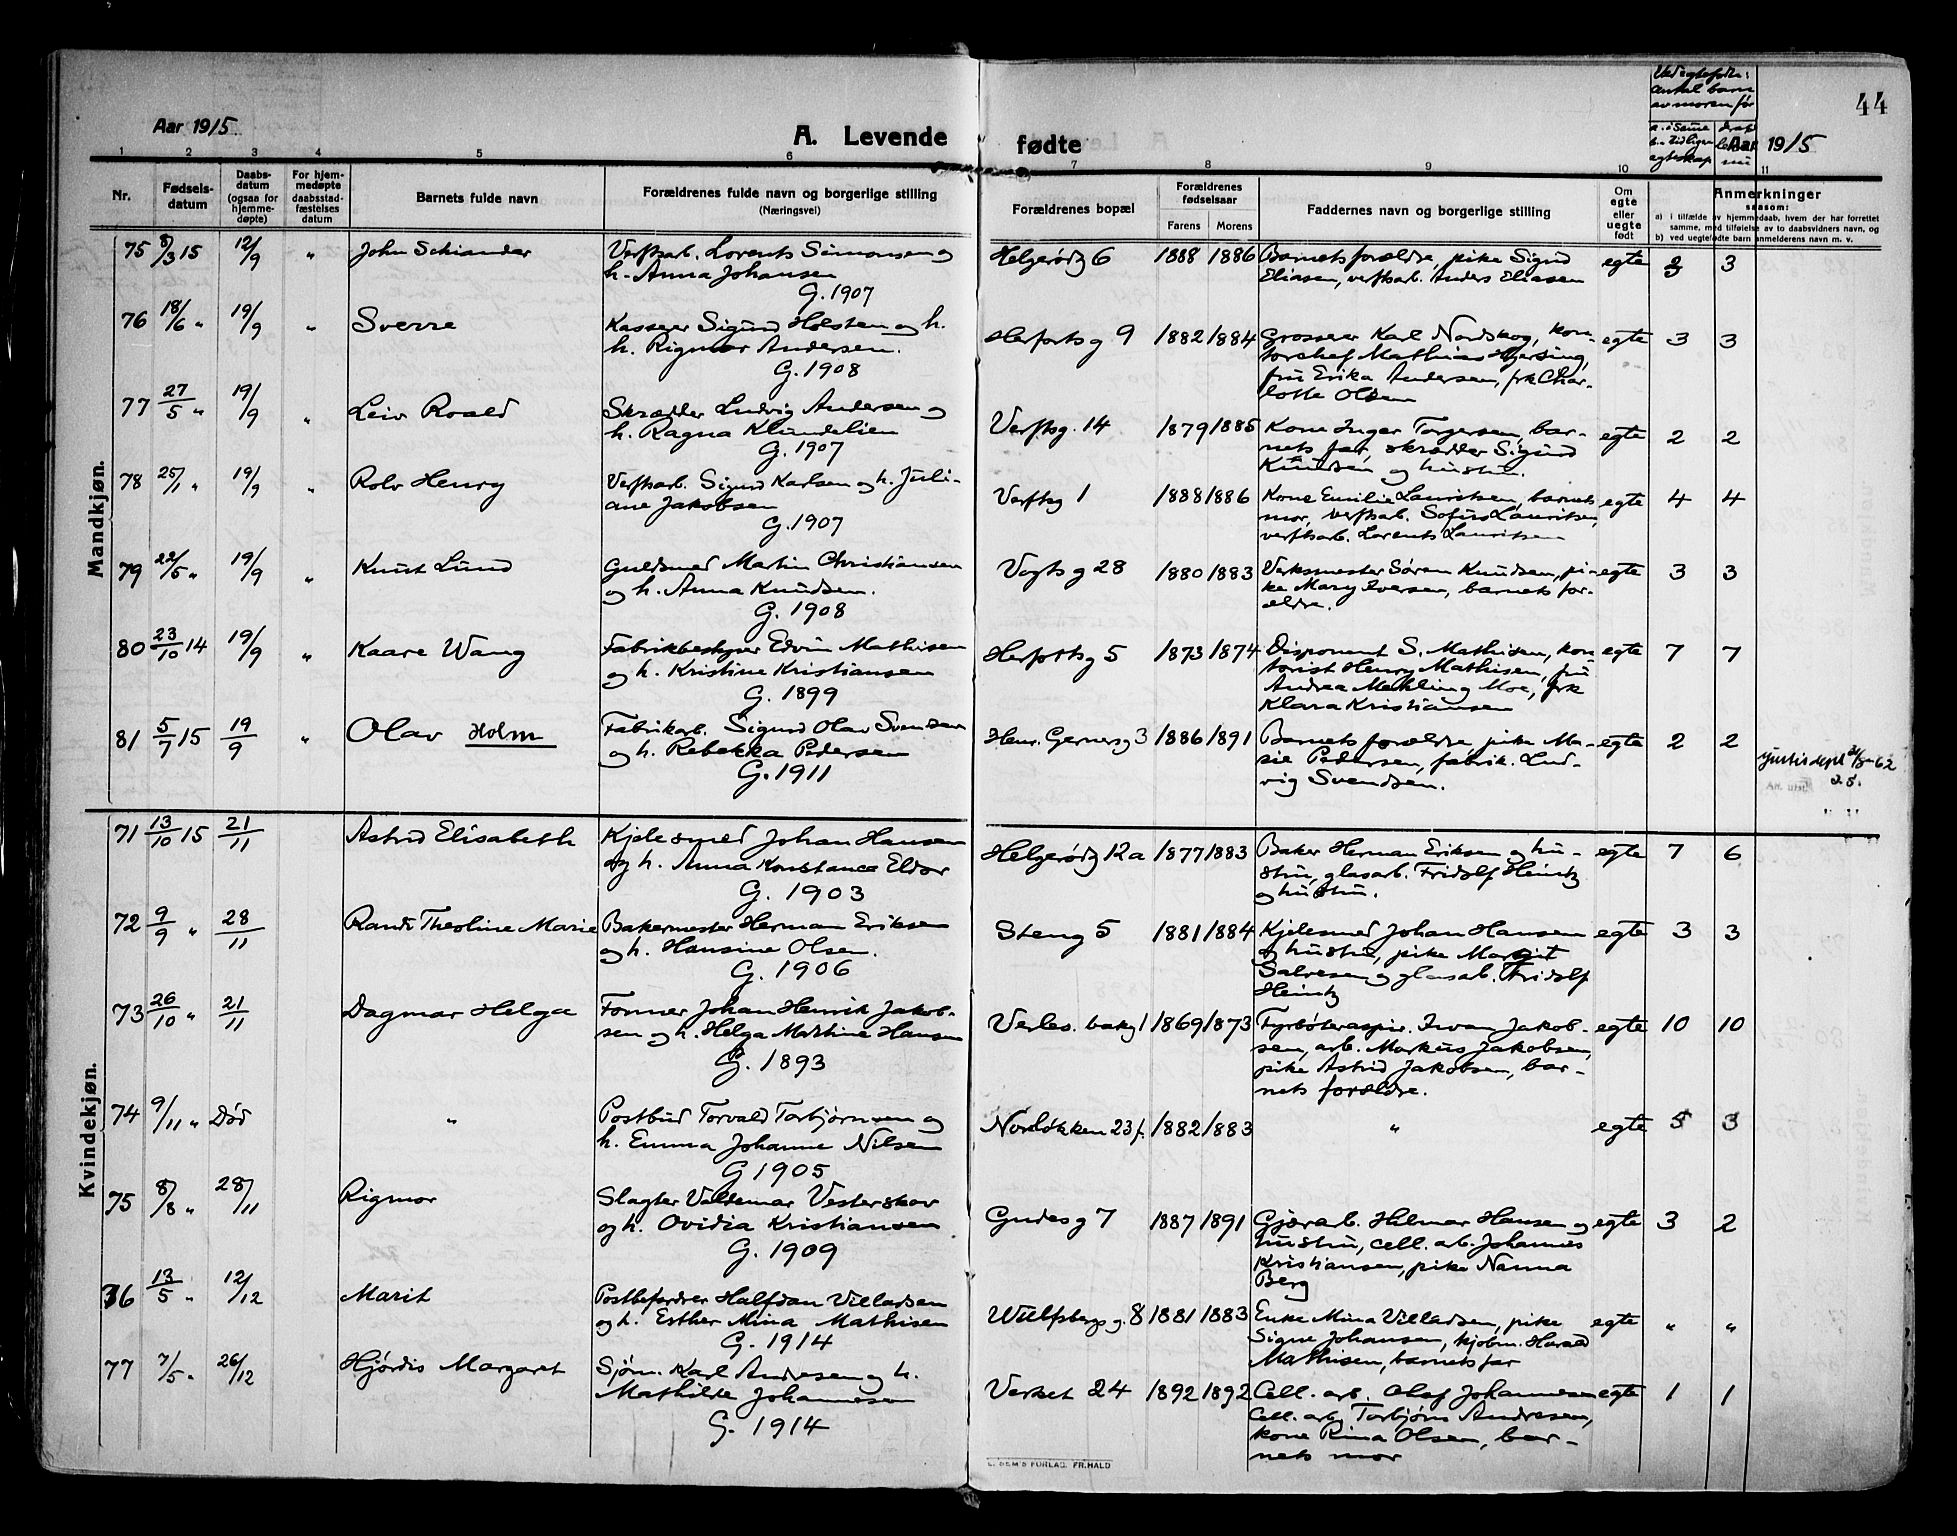 Aar 1915
A. Levende
fødte
Ved egtefødte:
antal barn
av moren før
a. i samme
b. tidligere
egteskap
nu
Aar 1915
44
1 2 3 4 5 6 7 8 9 10 11
Nr.
Fødsels-
datum
Daabs-
datum
(ogsaa for
hjemme-
døpte)
For hjem-
medøpte
daabsstad-
fæstelses
datum
Barnets fulde navn
Forældrenes fulde navn og borgerlige stilling
(Næringsvei)
Forældrenes bopæl
Forældrenes
fødselsaar
Farens Morens
Faddernes navn og borgerlige stilling
Om
egte
eller
uegte
født
Anmerkninger
saasom:
a) i tilfælde av hjemmedaab, hvem der har forrettet
samme, med tilføielse av to daabsvidners navn, og
b) ved uegtefødte barn anmelderens navn m. v.
Mandkjøn.
75 8/3 15 12/9 " John Schiander Verftsarb. Lorents Simonsen og Helgerødg 6 1888 1886 Barnets forældre, pike Sigrid egte 2 3
h. Anna Johansen Eliasen, verftsarb. Anders Eliasen
G. 1907
76 18/6 " 19/9 " Sverre Kasserer Sigurd Holsten og h. Herfortsg 9 1882 1884 Grosserer Karl Nordskog, kon- egte 3 3
h. Rigmor Andersen. torchef Mathias Gjersing,
G. 1908 fru Erika Andersen, frk Char-
lotte Olsen
77 27/5 " 19/9 " Leiv Roald Skrædder Ludvig Andersen og Verftsg. 14 1879 1885 Kone Inger Torgersen, bar- egte 2 2
h. Ragna Klundelien nets far, skrædder Sigurd
G. 1907 Knudsen og hustru.
78 25/1 " 19/9 " Rolv Henry Verftsarb. Sigurd Karlsen og h. Juli- Verftsg 1 1888 1886 Kone Emilie Lauritsen, barnets egte 4 4
ane Jakobsen mor, verftsarb. Sofus Lauritsen,
G. 1907 verftsarb. Lorents Lauritsen
79 22/5 " 19/9 " Knut Lund Guldsmed Martin Christiansen Vogts g 28 1880 1883 Verksmester Søren Knudsen, pi- egte 3 3
og h. Anna Knudsen. ke Mary Iversen, barnets for-
G. 1908 ældre.
80 23/10 14 19/9 " Kaare Wang Fabrikbestyrer Edvin Mathisen Herfortsg 5 1873 1874 Disponent S. Mathisen, kon- egte 7 7
og h. Kristine Kristiansen torist Henry Mathisen, fru
G. 1899 Andrea Mehling Moe, frk
Klara Kristiansen
81 5/7 15 19/9 " Olav Holm Fabrikarb. Sigurd Olav Svendsen Henr. Gernersg 3 1886 1891 Barnets forældre, pike Ma- egte 2 2
og h. Rebekka Pedersen sie Pedersen, fabrik. Lud-
G. 1911 vig Svendsen.
Justisdept
Kvindekjøn.
71 13/10 15 21/11 Astrid Elisabeth Kjelesmed Johan Hansen Helgerødg 12a 1877 1883 Baker Herman Eriksen og hu- egte 7 6
og h. Anna Konstance Eldor stru, glasarb. Fridolf Heintz
G. 1903 og hustru.
72 9/9 " 28/11 Randi Theoline Marie Bakermester Herman Eriksen Steng 5 1881 1884 Kjelesmed Johan Hansen egte 3 3
og h. Hansine Olsen. og hustru, pike Margit
G. 1906 Salvesen og glasarb. Fridolf
Heintz
73 26/10 " 21/11 Dagmar Helga Former Johan Henrik Jakob- Verles. bakg 1 1869 1873 Fyrbøteraspir. Ivan Jakob- egte 10 10
sen og h. Helga Martine Hansen sen, arb. Markus Jakobsen,
G. 1893 pike Astrid Jakobsen, bar-
nets forældre.
74 9/11 " Død " Postbud Torvald Torbjørnsen og Norløkken 23 f. 1882 1883 " egte 5 3
h. Emma Johanne Nilsen
G 1905
75 8/8 " 28/11 Rigmor Slagter Valdemar Vesterskov Gudes g 7 1887 1891 Gjørarb. Hilmar Hansen og egte 3 2
og h. Ovidia Kristiansen hustru, cell. arb. Johannes
G. 1909 Kristiansen, pike Nanna
Berg
76 13/5 " 12/12 Marit Postbefordrer Halfdan Villadsen Wulfsbergs g. 8 1881 1883 Enke Mina Villadsen, pike egte " "
og h. Esther Mina Mathisen Signe Johansen, kjøbm. Harald
G. 1914 Mathisen, barnets far
77 7/5 " 26/12 Hjørdis Margaret Sjøm. Karl Andresen og h. Verket 24 1892 1892 Cell. arb. Olaf Johannesen egte 1 1
Mathilde Johannesen Cell. arb. Torbjørn Andresen,
G. 1914 kone Rina Olsen, bar-
nets mor
E. SEM'S FORLAG. FR.HALD